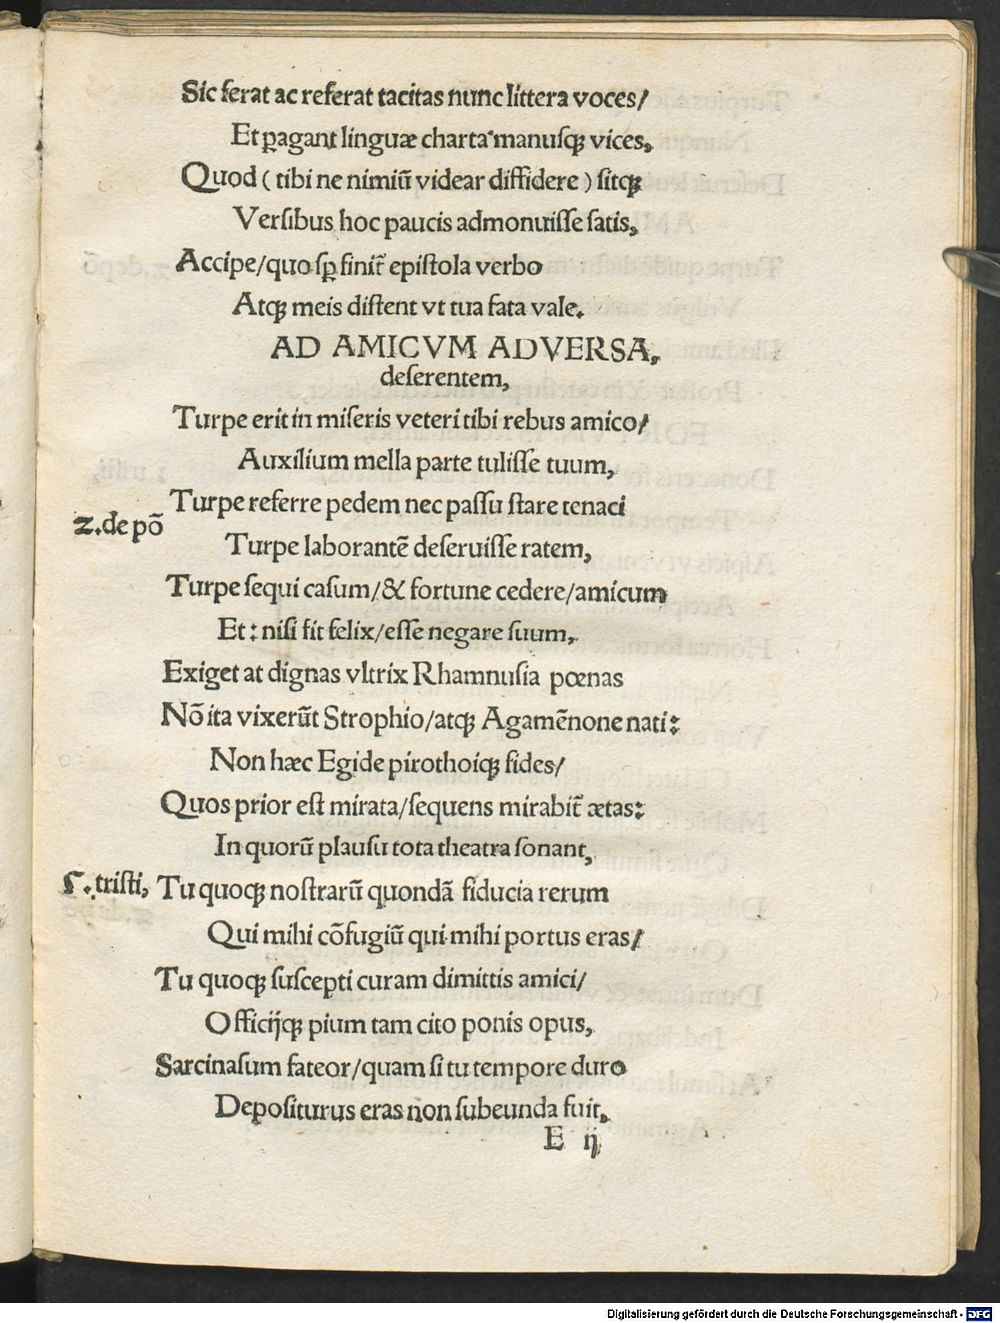 Sic ferat ac referat tacitas nunc littera voces/
Et ꝑagant linguæ charta manusqꝫ vices,
Quod ( tibi ne nimiũ videar diffidere ) sitqꝫ
Versibus hoc paucis admonuisse satis,
Accipe/quo sꝑ finit᷑ epistola verbo
Atqꝫ meis distent vt tua fata vale.
AD AMICVM ADVERSA,
deserentem,
Turpe erit in miseris veteri tibi rebus amico/
Auxilium mella parte tulisse tuum,
Turpe referre pedem nec passu stare tenaci
2.de põ
Turpe laborantẽ deseruisse ratem,
Turpe sequi casum/& fortune cedere/amicum
Et: nisi fit felix/esse negare suum,
Exiget at dignas vltrix Rhamnusia pœnas
Nõ ita vixerũt Strophio/atqꝫ Agamẽnone nati:
Non hæc Egide pirothoiqꝫ fides/
Quos prior est mirata/sequens mirabit᷑ ætas:
In quorũ plausu tota theatra sonant,
5.tristi,
Tu quoqꝫ nostrarũ quondã fiducia rerum
Qui mihi cõfugiũ qui mihi portus eras/
Tu quoqꝫ suscepti curam dimittis amici/
Officijqꝫ pium tam cito ponis opus,
Sarcina sum fateor/quam si tu tempore duro
Depositurus eras non subeunda fuit,
E ij
Digitalisierung gefördert durch die Deutsche Forschungsgemeinschaft - DFG